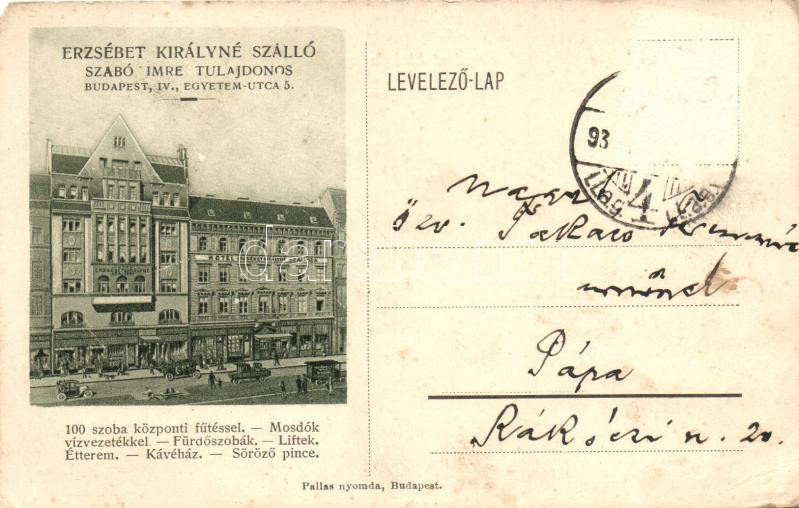 ERZSÉBET KIRÁLYNÉ SZÁLLÓ
SZABÓ IMRE TULAJDONOS
BUDAPEST, IV., EGYETEM-UTCA 5.
HOTEL
100 szoba központi fűtéssel. — Mosdók
vízvezetékkel — Fürdőszobák. — Liftek.
Étterem. — Kávéház. — Söröző pince.
LEVELEZŐ-LAP
93
özv. Takács
Pápa
Rákóczi u. 20.
Pallas nyomda, Budapest.